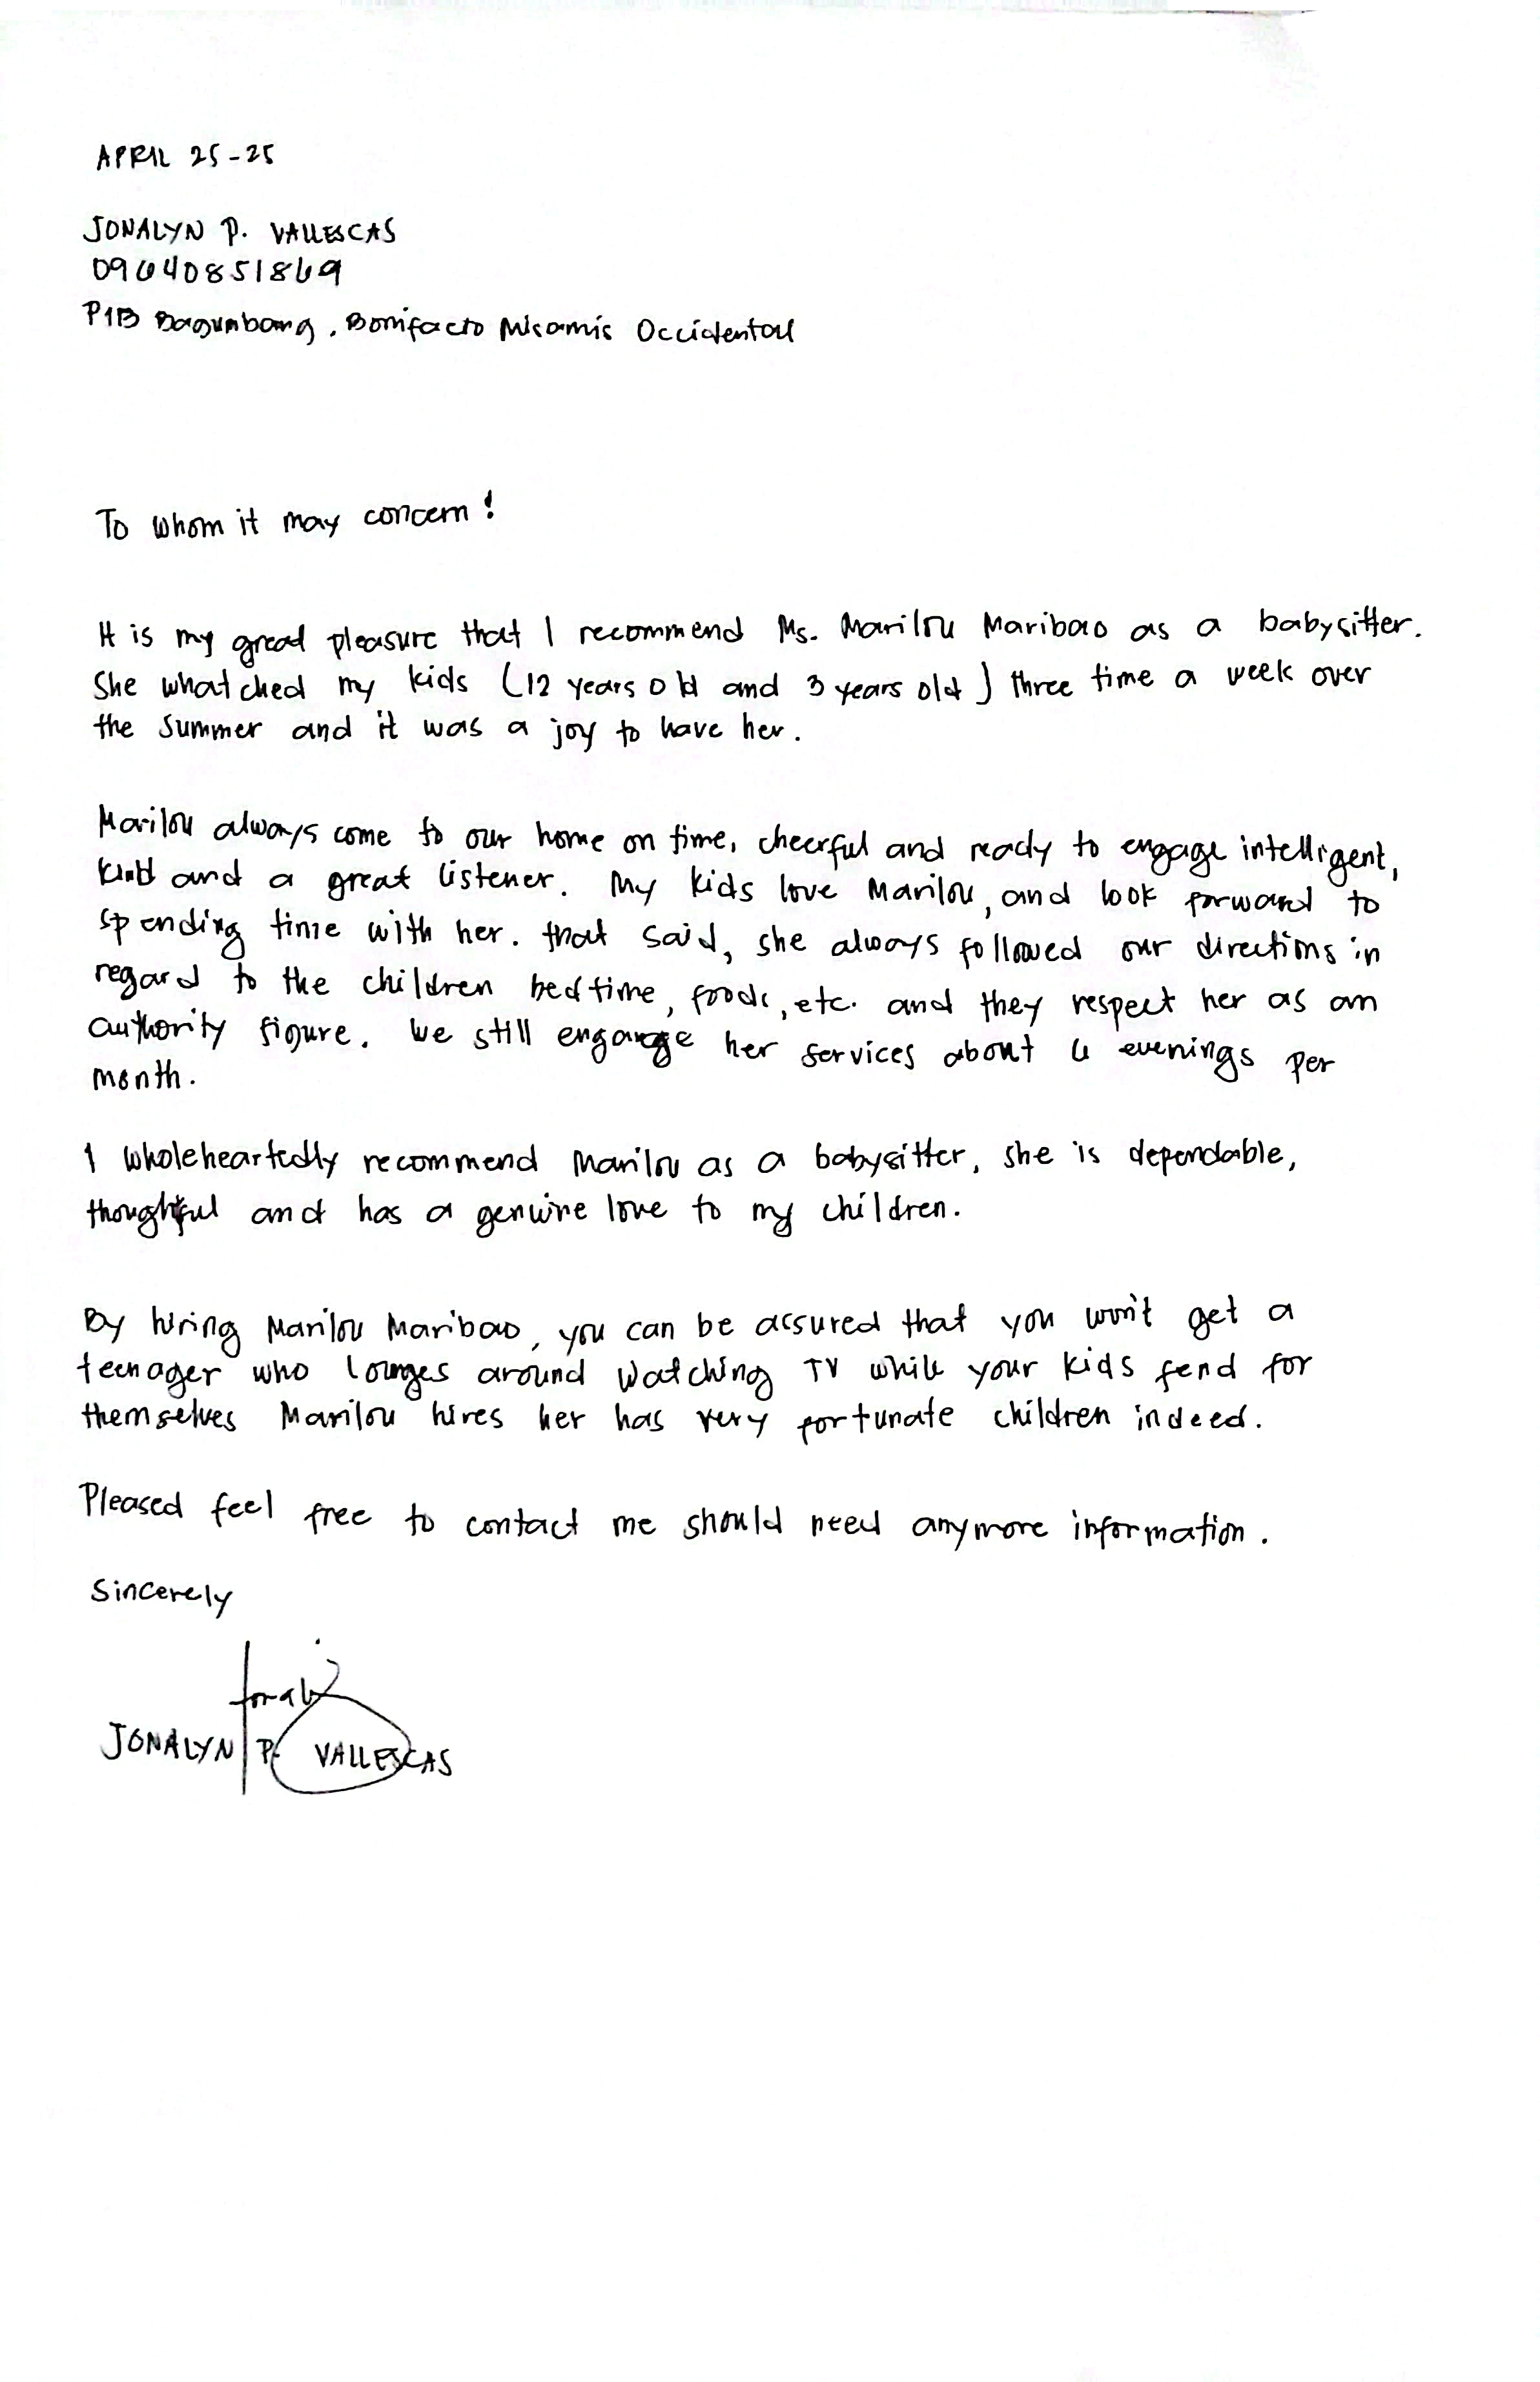 APRIL 25-25
JONALYN P. VALLESCAS
09640851869
P1B Bagumbang, Bonifacto Misamis Occidental
To whom it may concern!
It is my great pleasure that I recommend Ms. Marilou Maribao as a babysitter.
She whatched my kids (12 years old and 3 years old) three time a week over
the summer and it was a joy to have her.
Marilou always come to our home on time, cheerful and ready to engage intelligent,
kind and a great listener. My kids love Marilou, and look forward to
spending time with her. that said, she always followed our directions in
regard to the children bedtime, foods, etc. and they respect her as an
authority figure. We still engange her services about 6 evenings per
month.
I wholeheartedly recommend Marilou as a babysitter, she is dependable,
thoughtful and has a genuine love to my children.
By hiring Marilou Maribao, you can be assured that you won't get a
teenager who lounges around watching TV while your kids fend for
themselves Marilou hires her has very fortunate children indeed.
Pleased feel free to contact me should need anymore information.
Sincerely
JONALYN P. VALLESCAS